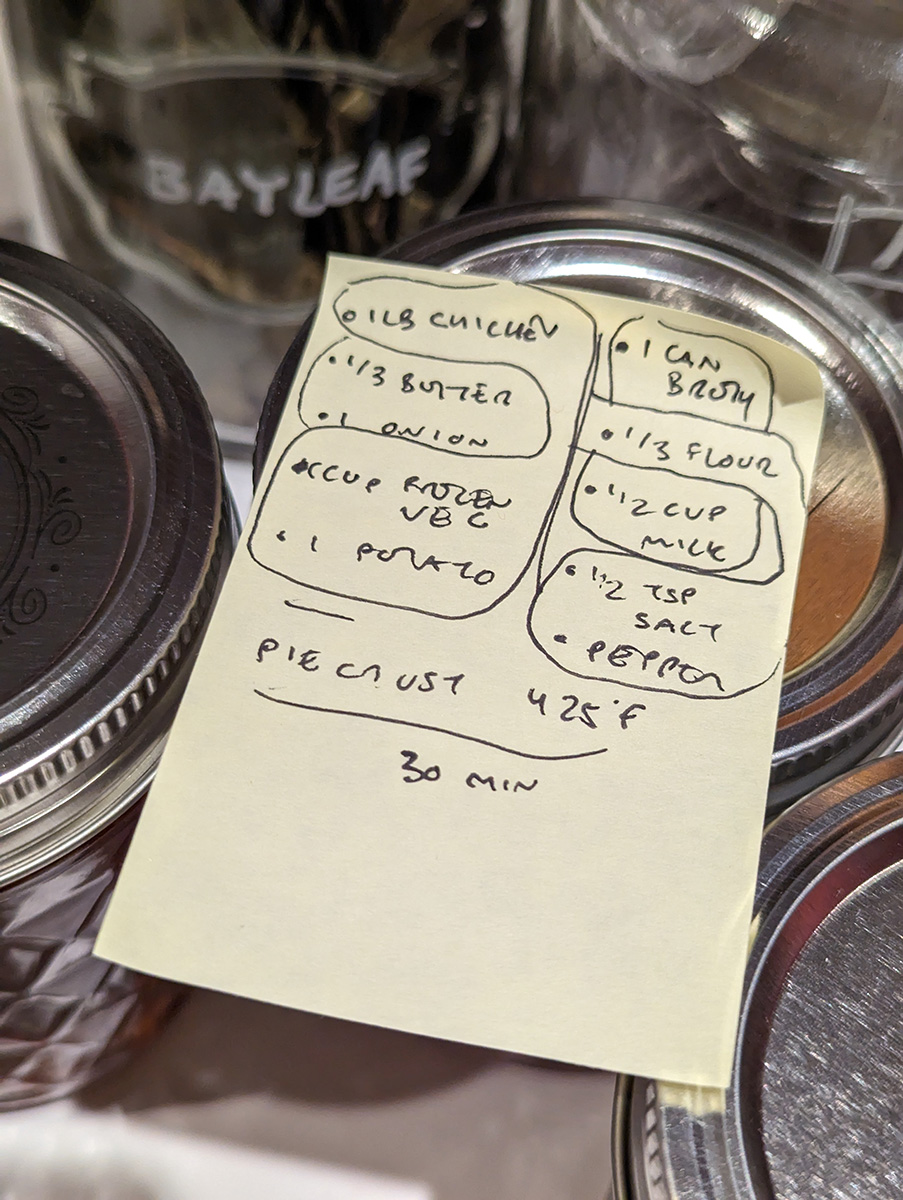 BAYLEAF
• 1LB CHICKEN
• 1/3 BUTTER
• 1 ONION
CUP FROZEN
VEG
• 1 POTATO
• 1 CAN
BROTH
• 1/3 FLOUR
• 1/2 CUP
MILK
• 1/2 TSP
SALT
• PEPPER
PIE CRUST
425°F
30 MIN